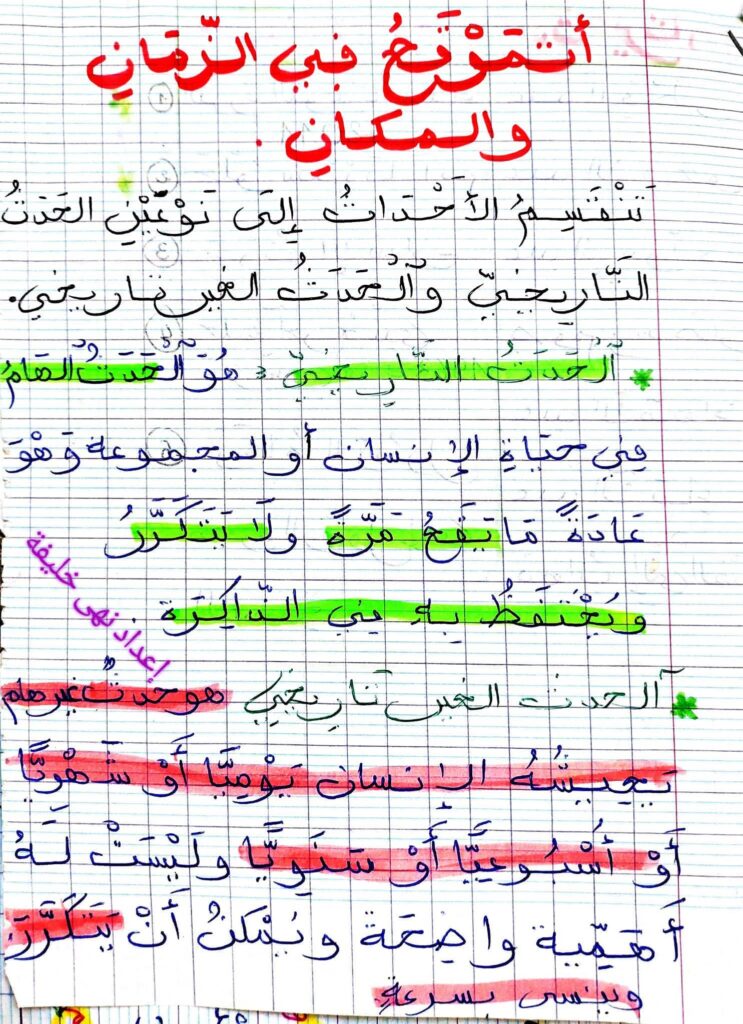 أتمَوْقَعُ في الزّمَانِ
والمكانِ .
تَنْقَسِمُ الأَحْدَاثُ إِلَى نَوْعَيْنِ الحَدَثُ
التَّارِيخِيّ وَٱلْحَدَثُ الغير تاريخي.
* ٱلْحَدَثُ التَّارِيخِيّ : هُوَ ٱلْحَدَثُ الهَامُّ
فِي حيَاةِ الإِنسان أو المجموعة وَهْوَ
عَادَةً مَا يَقَعُ مَرَّةً ولَا يَتَكَرَّرُ
ويُحْتَفَظُ بِهِ فِي الذَّاكِرَة .
إعداد نهى خليفة
* ٱلحدث الغير تَارِيخِي هو حدثٌ غير هام
يَعِيشُهُ الإِنسان يَوْمِيًّا أَوْ شَهْرِيًّا
أَوْ أُسْبُوعِيًّا أَوْ سَنَوِيًّا ولَيْسَتْ لَهُ
أَهَمِّية واضِحَة ويُمْكنُ أَنْ يَتَكَرَّرَ
وينسى بسرعةٍ